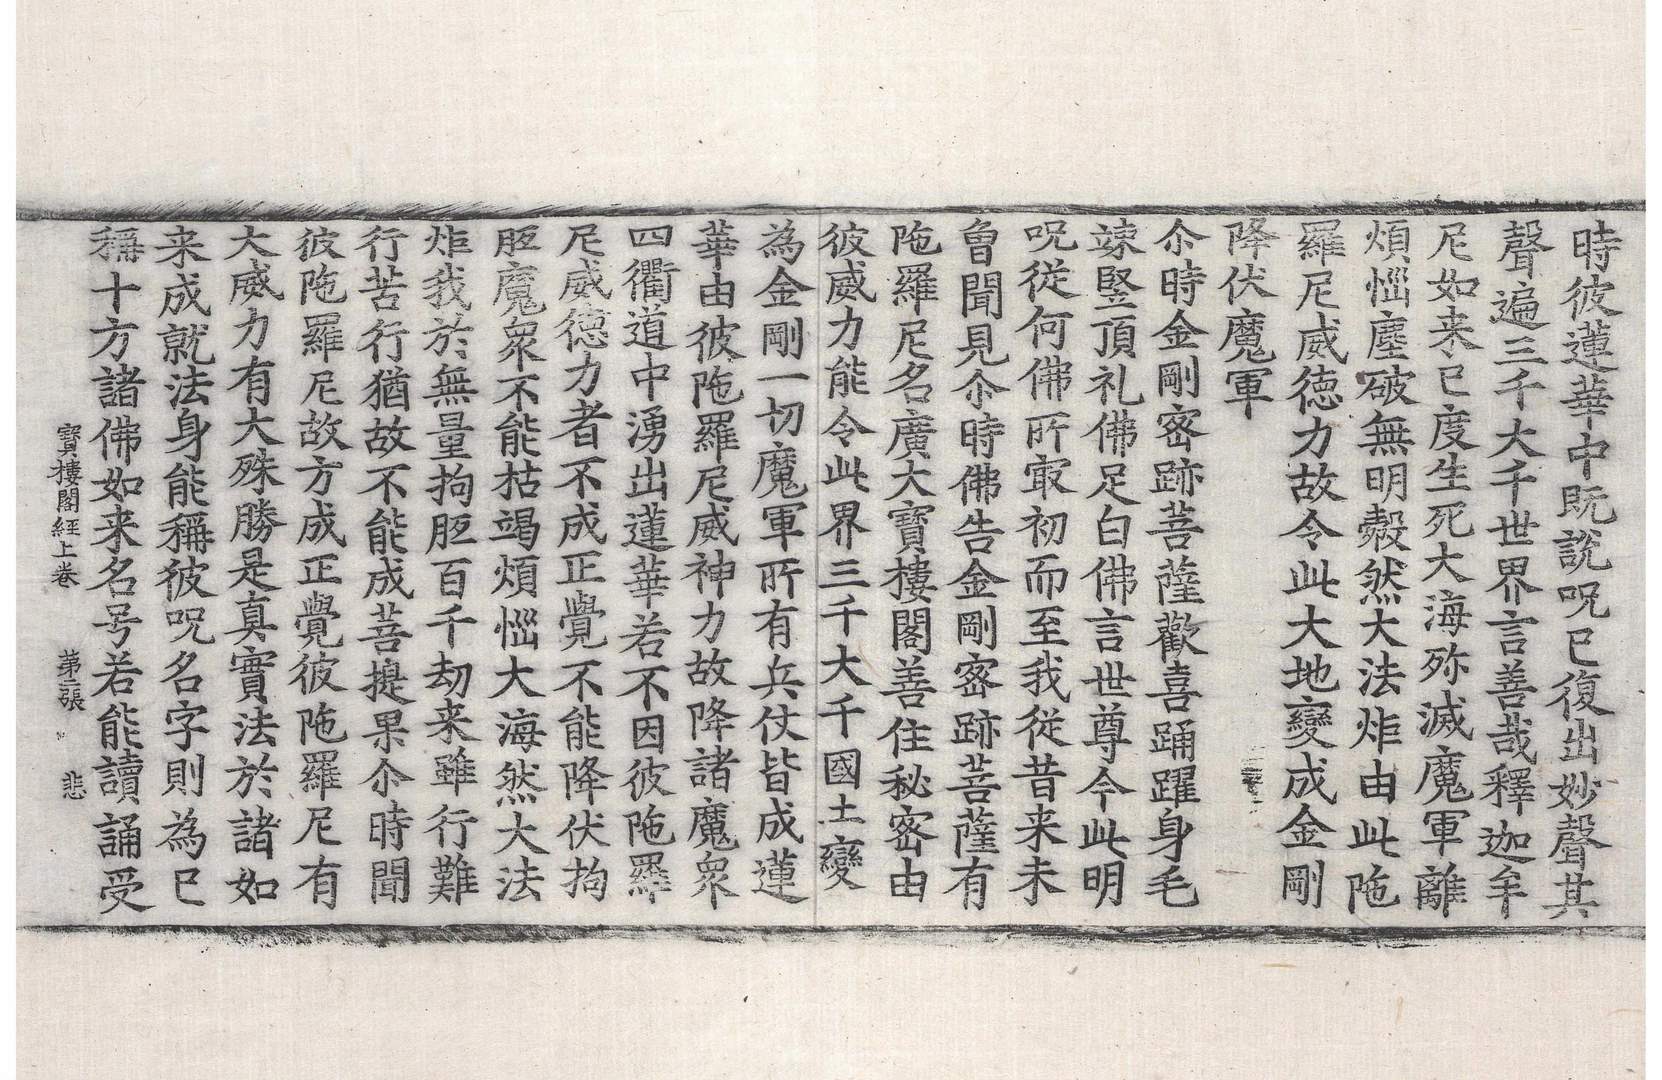 時彼蓮華中既說呪已復出妙聲其
聲遍三千大千世界言善哉釋迦牟
尼如来已度生死大海殄滅魔軍離
煩惱塵破無明㲉然大法炬由此陁
羅尼威德力故令此大地變成金剛
降伏魔軍
尒時金剛密跡菩薩歡喜踊躍身毛
竦竪頂礼佛足白佛言世尊今此明
呪従何佛所㝡初而至我従昔来未
曾聞見尒時佛告金剛密跡菩薩有
陁羅尼名廣大寶樓閣善住秘密由
彼威力能令此界三千大千國土變
為金剛一切魔軍所有兵仗皆成蓮
華由彼陁羅尼威神力故降諸魔衆
四衢道中湧出蓮華若不因彼陁羅
尼威德力者不成正覺不能降伏拘
胝魔衆不能枯竭煩惱大海然大法
炬我於無量拘胝百千劫来雖行難
行苦行猶故不能成菩提果尒時聞
彼陁羅尼故方成正覺彼陁羅尼有
大威力有大殊勝是真實法於諸如
来成就法身能稱彼呪名字則為已
稱十方諸佛如来名号若能讀誦受
寶樓閣經上卷 第二張 悲